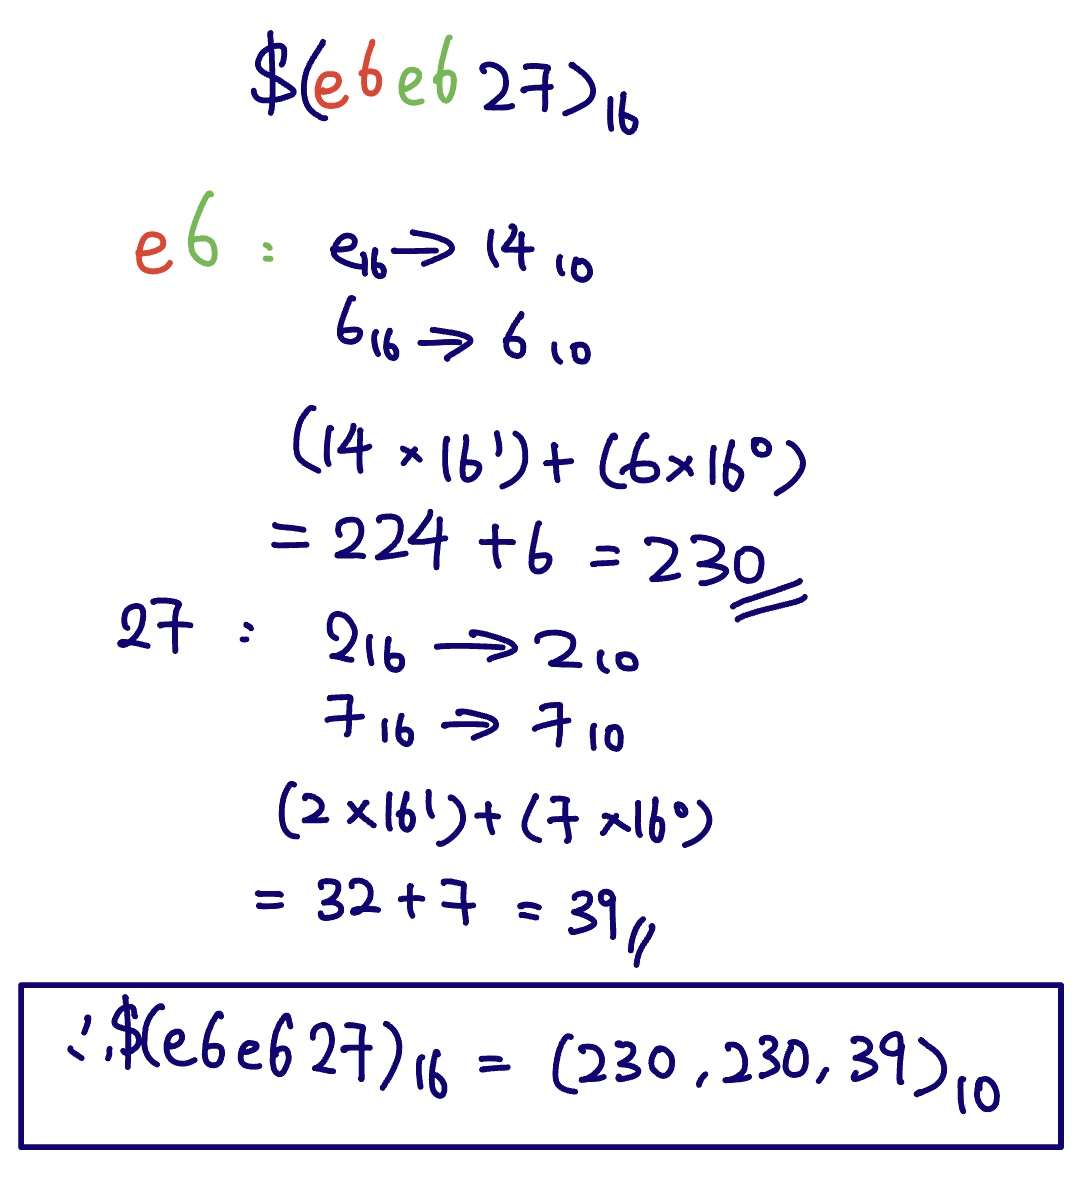 $(e6e627)₁₆
e6 : e₁₆ → 14₁₀
6₁₆ → 6₁₀
(14 × 16¹) + (6 × 16⁰)
= 224 + 6 = 230
27 : 2₁₆ → 2₁₀
7₁₆ → 7₁₀
(2 × 16¹) + (7 × 16⁰)
= 32 + 7 = 39
∴ $(e6e627)₁₆ = (230, 230, 39)₁₀